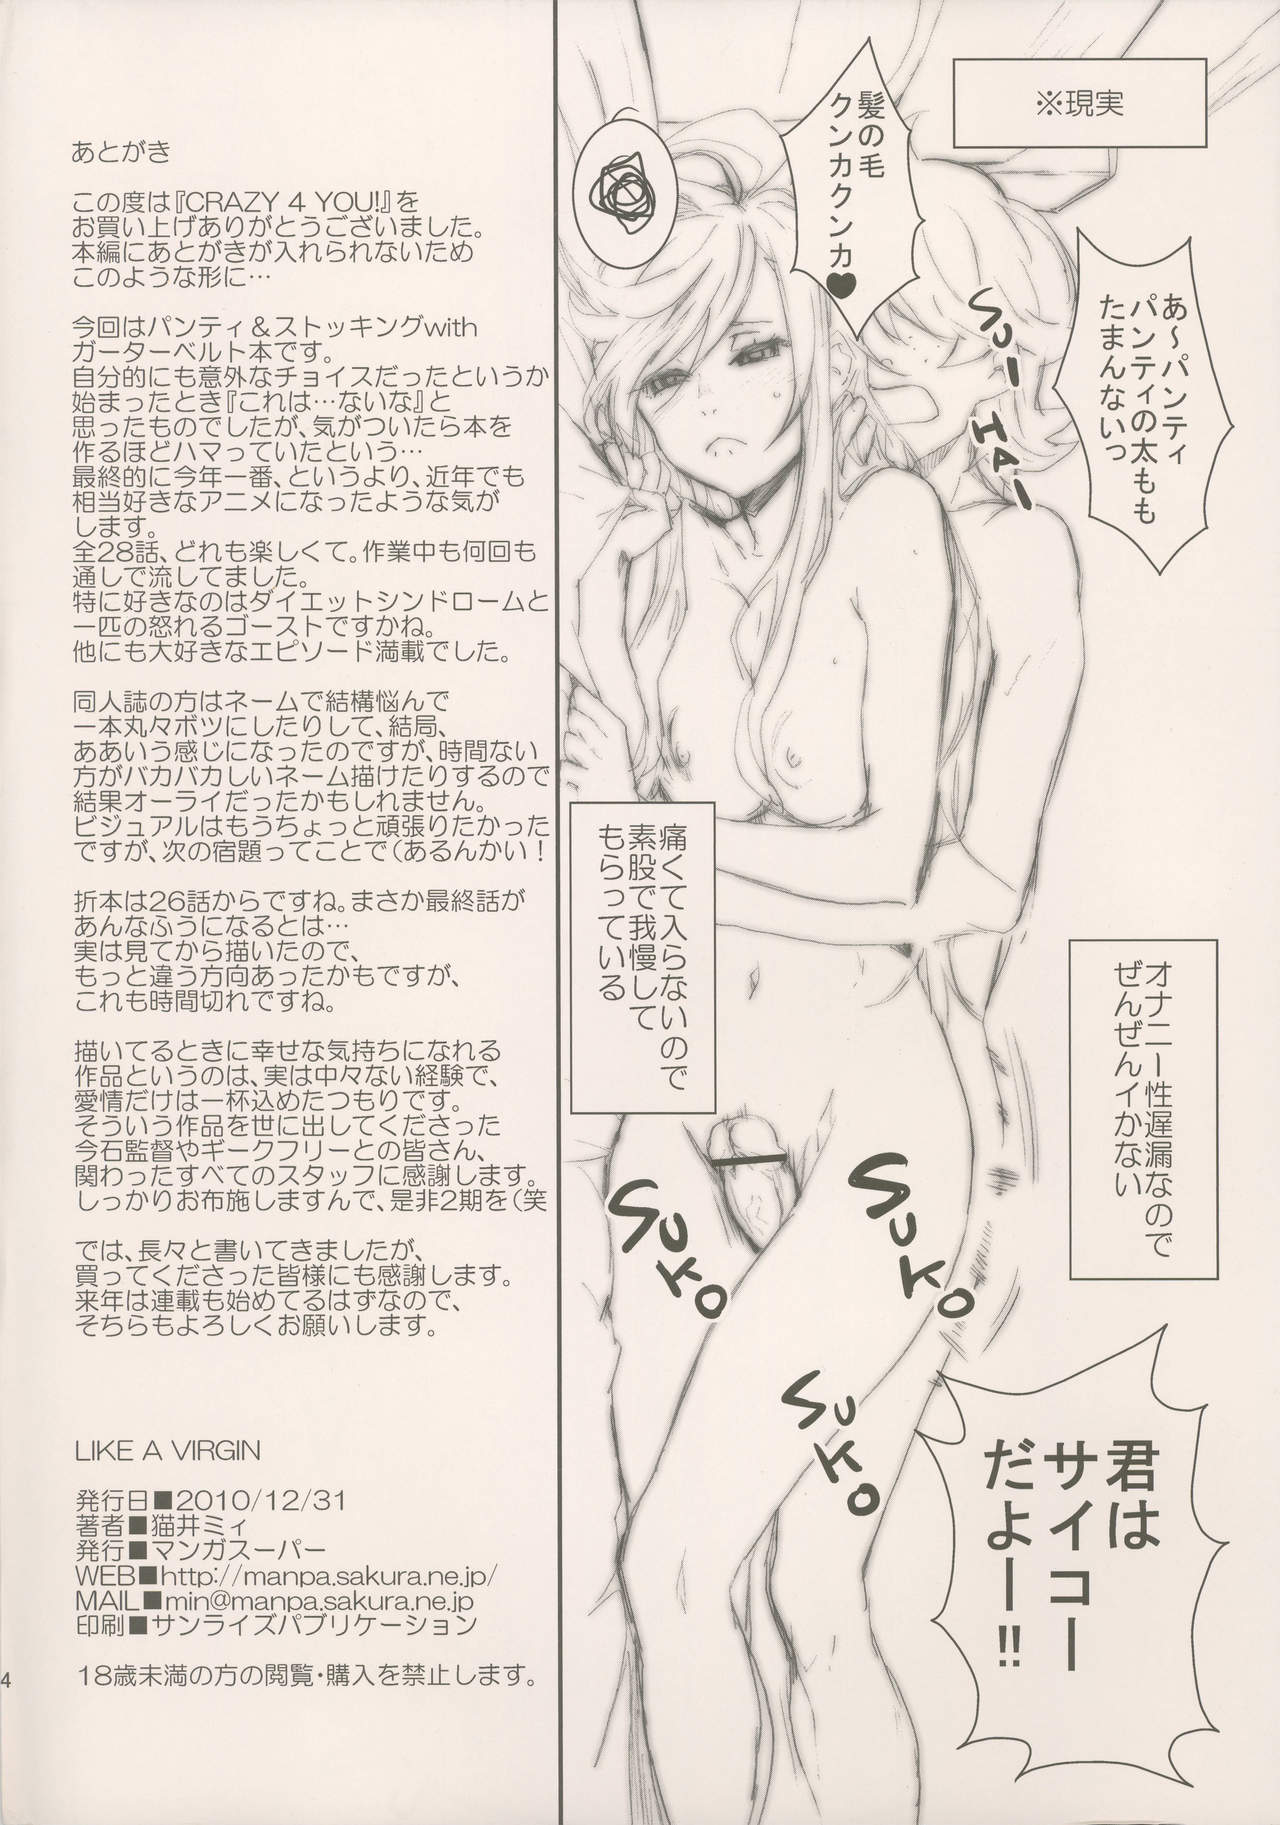 ※現実
髪の毛
クンカクンカ♥
あ～パンティ
パンティの太もも
たまんないっ
SUーHAー
痛くて入らないので
素股で我慢して
もらっている
オナニー性遅漏なので
ぜんぜんイかない
SUKO
SUKO
SUKO
君は
サイコー
だよー!!
あとがき
この度は『CRAZY 4 YOU!』を
お買い上げありがとうございました。
本編にあとがきが入れられないため
このような形に…
今回はパンティ＆ストッキングwith
ガーターベルト本です。
自分的にも意外なチョイスだったというか
始まったとき『これは…ないな』と
思ったものでしたが、気がついたら本を
作るほどハマっていたという…
最終的に今年一番、というより、近年でも
相当好きなアニメになったような気が
します。
全28話、どれも楽しくて。作業中も何回も
通しで流してました。
特に好きなのはダイエットシンドロームと
一匹の怒れるゴーストですかね。
他にも大好きなエピソード満載でした。
同人誌の方はネームで結構悩んで
一本丸々ボツにしたりして、結局、
ああいう感じになったのですが、時間ない
方がバカバカしいネーム描けたりするので
結果オーライだったかもしれません。
ビジュアルはもうちょっと頑張りたかった
ですが、次の宿題ってことで（あるんかい！
折本は26話からですね。まさか最終話が
あんなふうになるとは…
実は見てから描いたので、
もっと違う方向あったかもですが、
これも時間切れですね。
描いてるときに幸せな気持ちになれる
作品というのは、実は中々ない経験で、
愛情だけは一杯込めたつもりです。
そういう作品を世に出してくださった
今石監督やギークフリーとの皆さん、
関わったすべてのスタッフに感謝します。
しっかりお布施しますんで、是非2期を（笑
では、長々と書いてきましたが、
買ってくださった皆様にも感謝します。
来年は連載も始めてるはずなので、
そちらもよろしくお願いします。
LIKE A VIRGIN
発行日■2010/12/31
著者■猫井ミィ
発行■マンガスーパー
WEB■http://manpa.sakura.ne.jp/
MAIL■min@manpa.sakura.ne.jp
印刷■サンライズパブリケーション
18歳未満の方の閲覧・購入を禁止します。
4